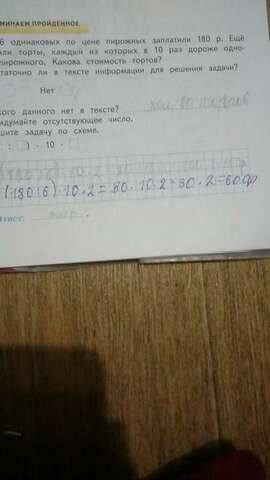 МИНАЕМ ПРОЙДЕННОЕ
6 одинаковых по цене пирожных заплатили 180 р. Ещё
или торты, каждый из которых в 10 раз дороже одно-
пирожного. Какова стоимость тортов?
таточно ли в тексте информации для решения задачи?
Нет
кого данного нет в тексте? кол во тортов
идумайте отсутствующее число.
шите задачу по схеме.
: ) · 10 ·
(180:6)·10·2=30·10·2=30·2=60
Ответ: